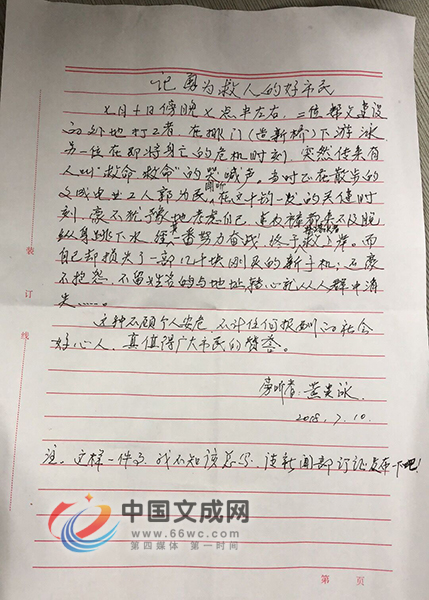 记勇为救人的好市民
七月十日傍晚七点半左右，二位 文建设
的外地打工者在 门（造新桥）下游泳。
另一位在即将身亡的危机时刻，突然传来有
人叫“救命救命”的哭喊声，当时正在散步的
文成电业工人郭为民，闻听在这千钧一发的关键时
刻，毫不犹豫地 自己，连衣裤都来不及脱
纵身跳下水，经一番努力奋战，终于救上岸。而
自己却损失了一部几千块刚买的新手机；还毫
不抱怨，不留姓名的与地址 就从人群中消
失……。
这种不顾个人安危，不计任何报酬的社会
好心人，真值得广大市民的赞誉。
旁听者：黄 泳
2018.7.10.
注。这样一件事，我不知该怎写，请新闻部订证 一下吧！
装
订
线
中国文成网
www.66wc.com
第四媒体 第一时间
第 页